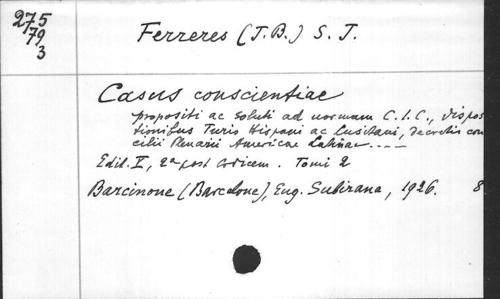 275
79
3
Ferreres (J.B.) S. J.
Casus conscientiae
propositi ac soluti ad normam C.I.C., dispos
tionibus Turis Hispani ac Lusitani, decretis con
cilii Plenarii Americae Latinae ----
Edit. V, 2a post Codicem. Tomi 2
Barcinone (Barcelone), Eug. Subirana, 1926. 8